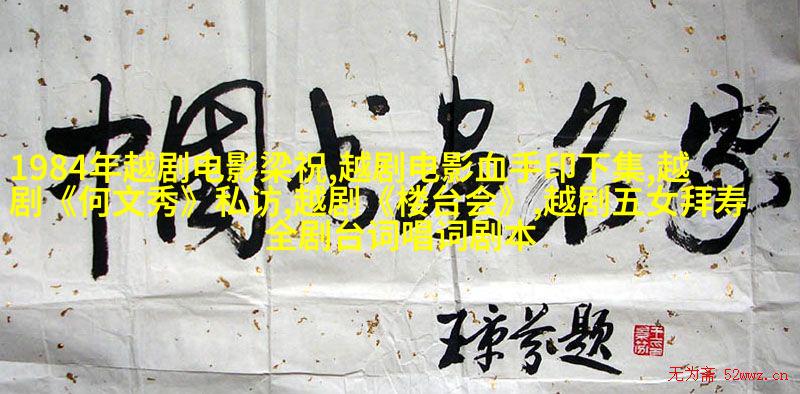 中国书画名家
1984年越剧电影梁祝,越剧电影血手印下集,越
剧《何文秀》私访,越剧《楼台会》,越剧五女拜寿
全剧台词唱词剧本
王京芬题
无为斋 52wwz.cn